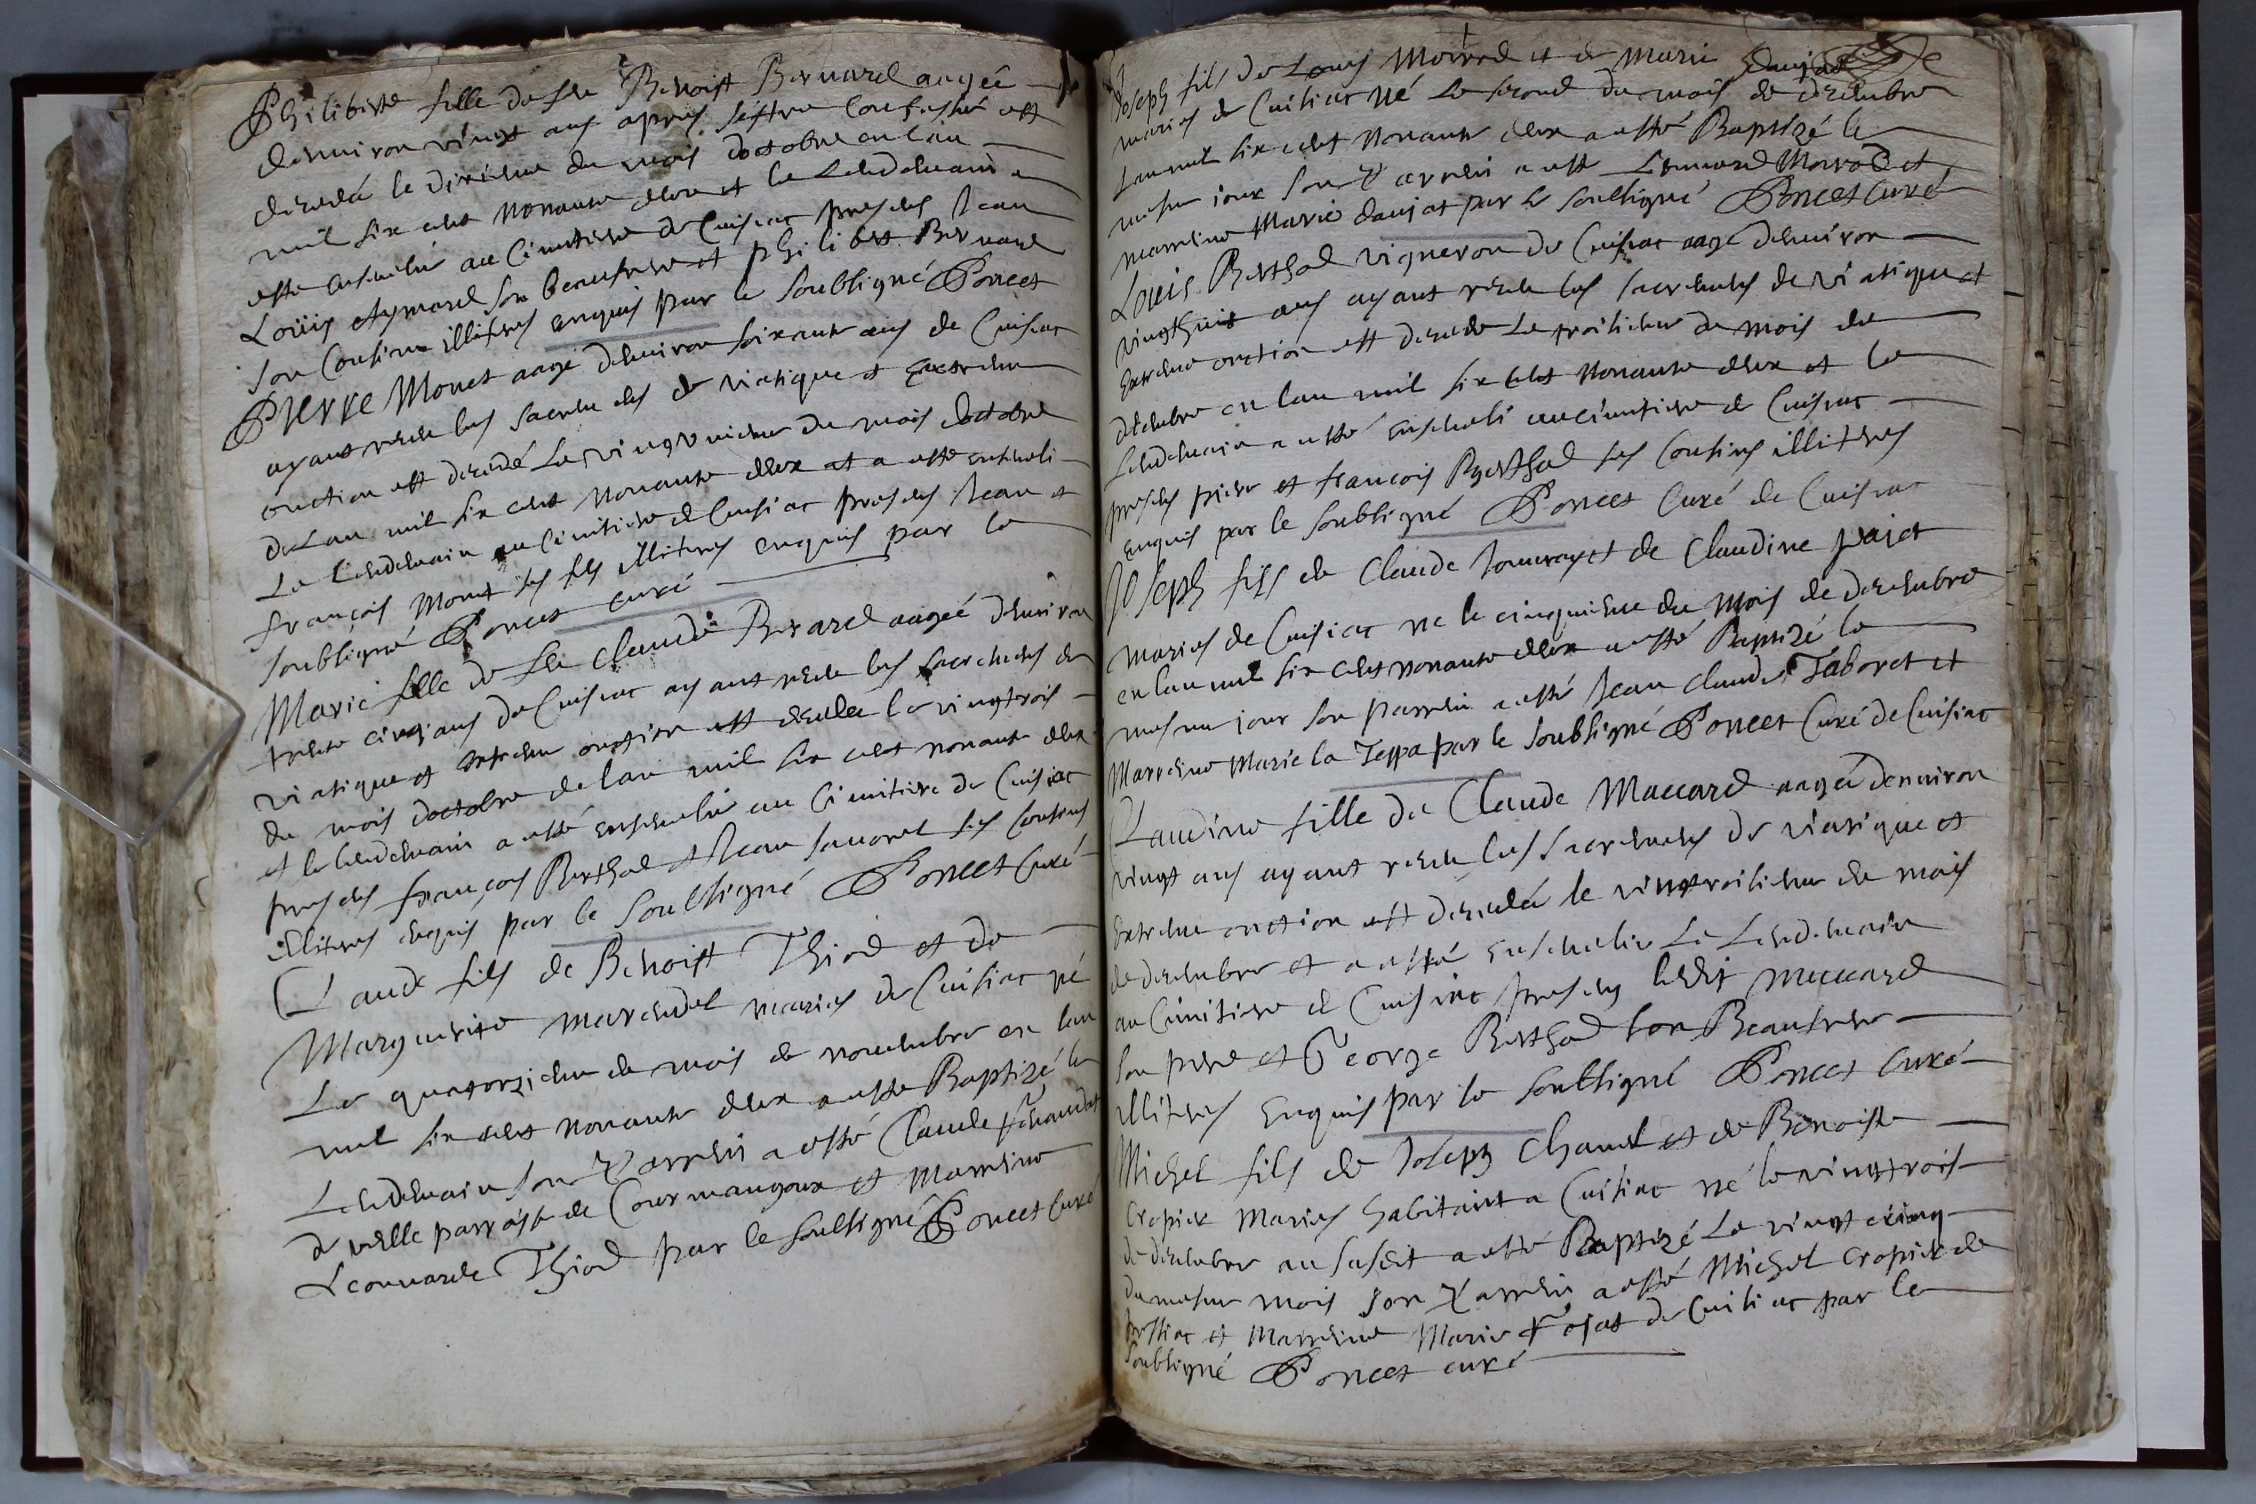 Philiberte fille de feu Benoist Bernard aagée
denviron vingt ans apres sestre confessée est
decedá le dixiéme du mois doctobre en lan
mil six cent nonante deux et le Lendemain a
esté ensevelie au Cimitiere de Cuisiat presens Jean
Loüis Aymard son beaufrere et philibert Bernard
son Cousin illitres enquis par le soubsigné Poncet
Pierre Monet aagé denviron soixante ans de Cuisiat
ayant receu les sacremens de viatique et Extreme
onction est decedé Le vingt du mois doctobre
de Lan mil six cent nonante deux et a esté enseveli
Le Lendemain au Cimitiere de Cuisiat presens Jean et
françois Monet ses fils illitres enquis par le
soubsigné Poncet curé
Marie fille de feu claude Berard aagée denviron
trente cinq ans de Cuisiat ayant receu les sacremens de
viatique et extreme onction est decedee le vingtrois
du mois doctobre de lan mil six cent nonante deux
et le lendemain a esté ensevelie au Cimitiere de Cuisiat
presens françois Berthod et Jean savoret ses cousins
illitres enquis par le soubsigné Poncet Curé
Claude fils de Benoist Thiod et de
Marguerite marendet maries de Cuisiat né
Le quatorzieme du mois de novembre en lan
mil six cent nonante deux a esté Baptizé le
Lendemain son Parrein a esté Claude
de parroisse de Courmangoux et Marreine
Leonarde Thiod par le soubsigné Poncet Curé
Joseph fils de Louis Moirod et de Marie danjat
maries de Cuisiat né Le second du mois de decembre
Lan mil six cent nonante deux a esté Baptizé le
mesme jour son Parrein a esté Leonard Moirod et
marreine Marie danjat par le soubsigné Poncet Curé
Louis Berthod vigneron de Cuisiat aagé denviron
vingthuit ans ayant receu les sacremens de viatique et
Extreme onction est decedé Le troisieme du mois de
decembre en lan mil six cent nonante deux et le
Lendemain a esté enseveli au cimitiere de Cuisiat
presens pierre et francois Berthod ses cousins illitres
enquis par le soubsigné Poncet Curé de Cuisiat
Joseph fils de Claude Jouvray et de Claudine pajet
maries de Cuisiat né le cinquieme du Mois de decembre
en lan mil six cent nonante deux a esté Baptizé le
mesme jour son parrein a esté Jean claude Taboret et
Marreine Marie la Teppa par le soubsigné Poncet Curé de Cuisiat
Claudine fille de Claude Maccard aagée denviron
vingt ans ayant receu les sacremens de viatique et
Extreme onction est decedée le vingtroisieme du mois
de decembre et a esté ensevelie Le Lendemain
au Cimitiere de Cuisiat presens ledit maccard
son pere et George Berthod son Beaufrere
illitres Enquis par le soubsigné Poncet Curé
Michel fils de Joseph Chanel et de Benoiste
Cropier Maries habitant a Cuisiat né le vingtrois
de decembre an susdit a esté Baptizé Le vingt cinq
du mesme mois son Parrein a esté Michel cropier de
pressiat et Marreine Marie de Cuisiat par le
soubsigné Poncet curé